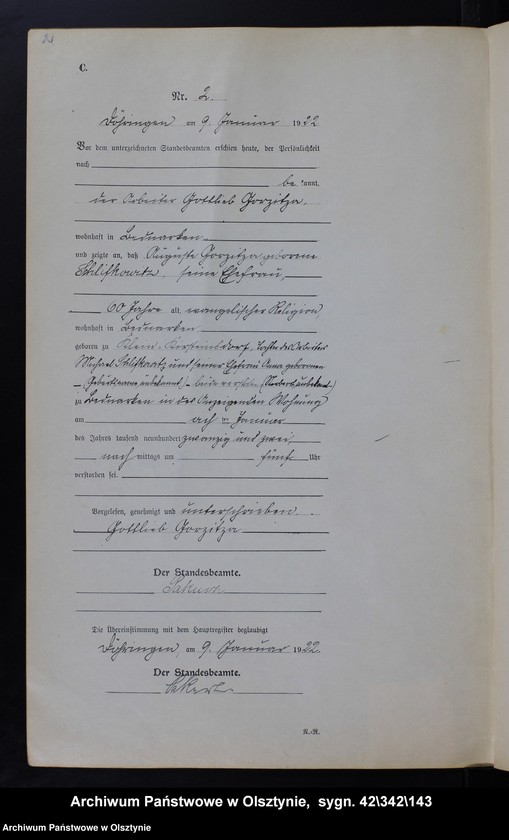 C.
Nr. 2.
Döhringen am 9. Januar 1922
Vor dem unterzeichneten Standesbeamten erschien heute, der Persönlichkeit
nach
be kannt,
der Arbeiter Gottlieb Gorzitza,
wohnhaft in Bednarken
und zeigte an, daß Auguste Gorzitza geborene
seine Ehefrau,
60 Jahre alt, evangelischer Religion
wohnhaft in Bednarken
geboren zu Klein Tochter des Arbeiters
Michael und seiner Ehefrau geborenen
beide
zu Bednarken in des Anzeigenden Wohnung
am acht Januar
des Jahres tausend neunhundert zwanzig und zwei,
nach mittags um fünf Uhr
verstorben sei.
Vorgelesen, genehmigt und unterschrieben.
Gottlieb Gorzitza
Der Standesbeamte.
Die Übereinstimmung mit dem Hauptregister beglaubigt
Döhringen, am 9. Januar 1922.
Der Standesbeamte.
Archiwum Państwowe w Olsztynie, sygn. 42\342\143
Archiwum Państwowe w Olsztynie